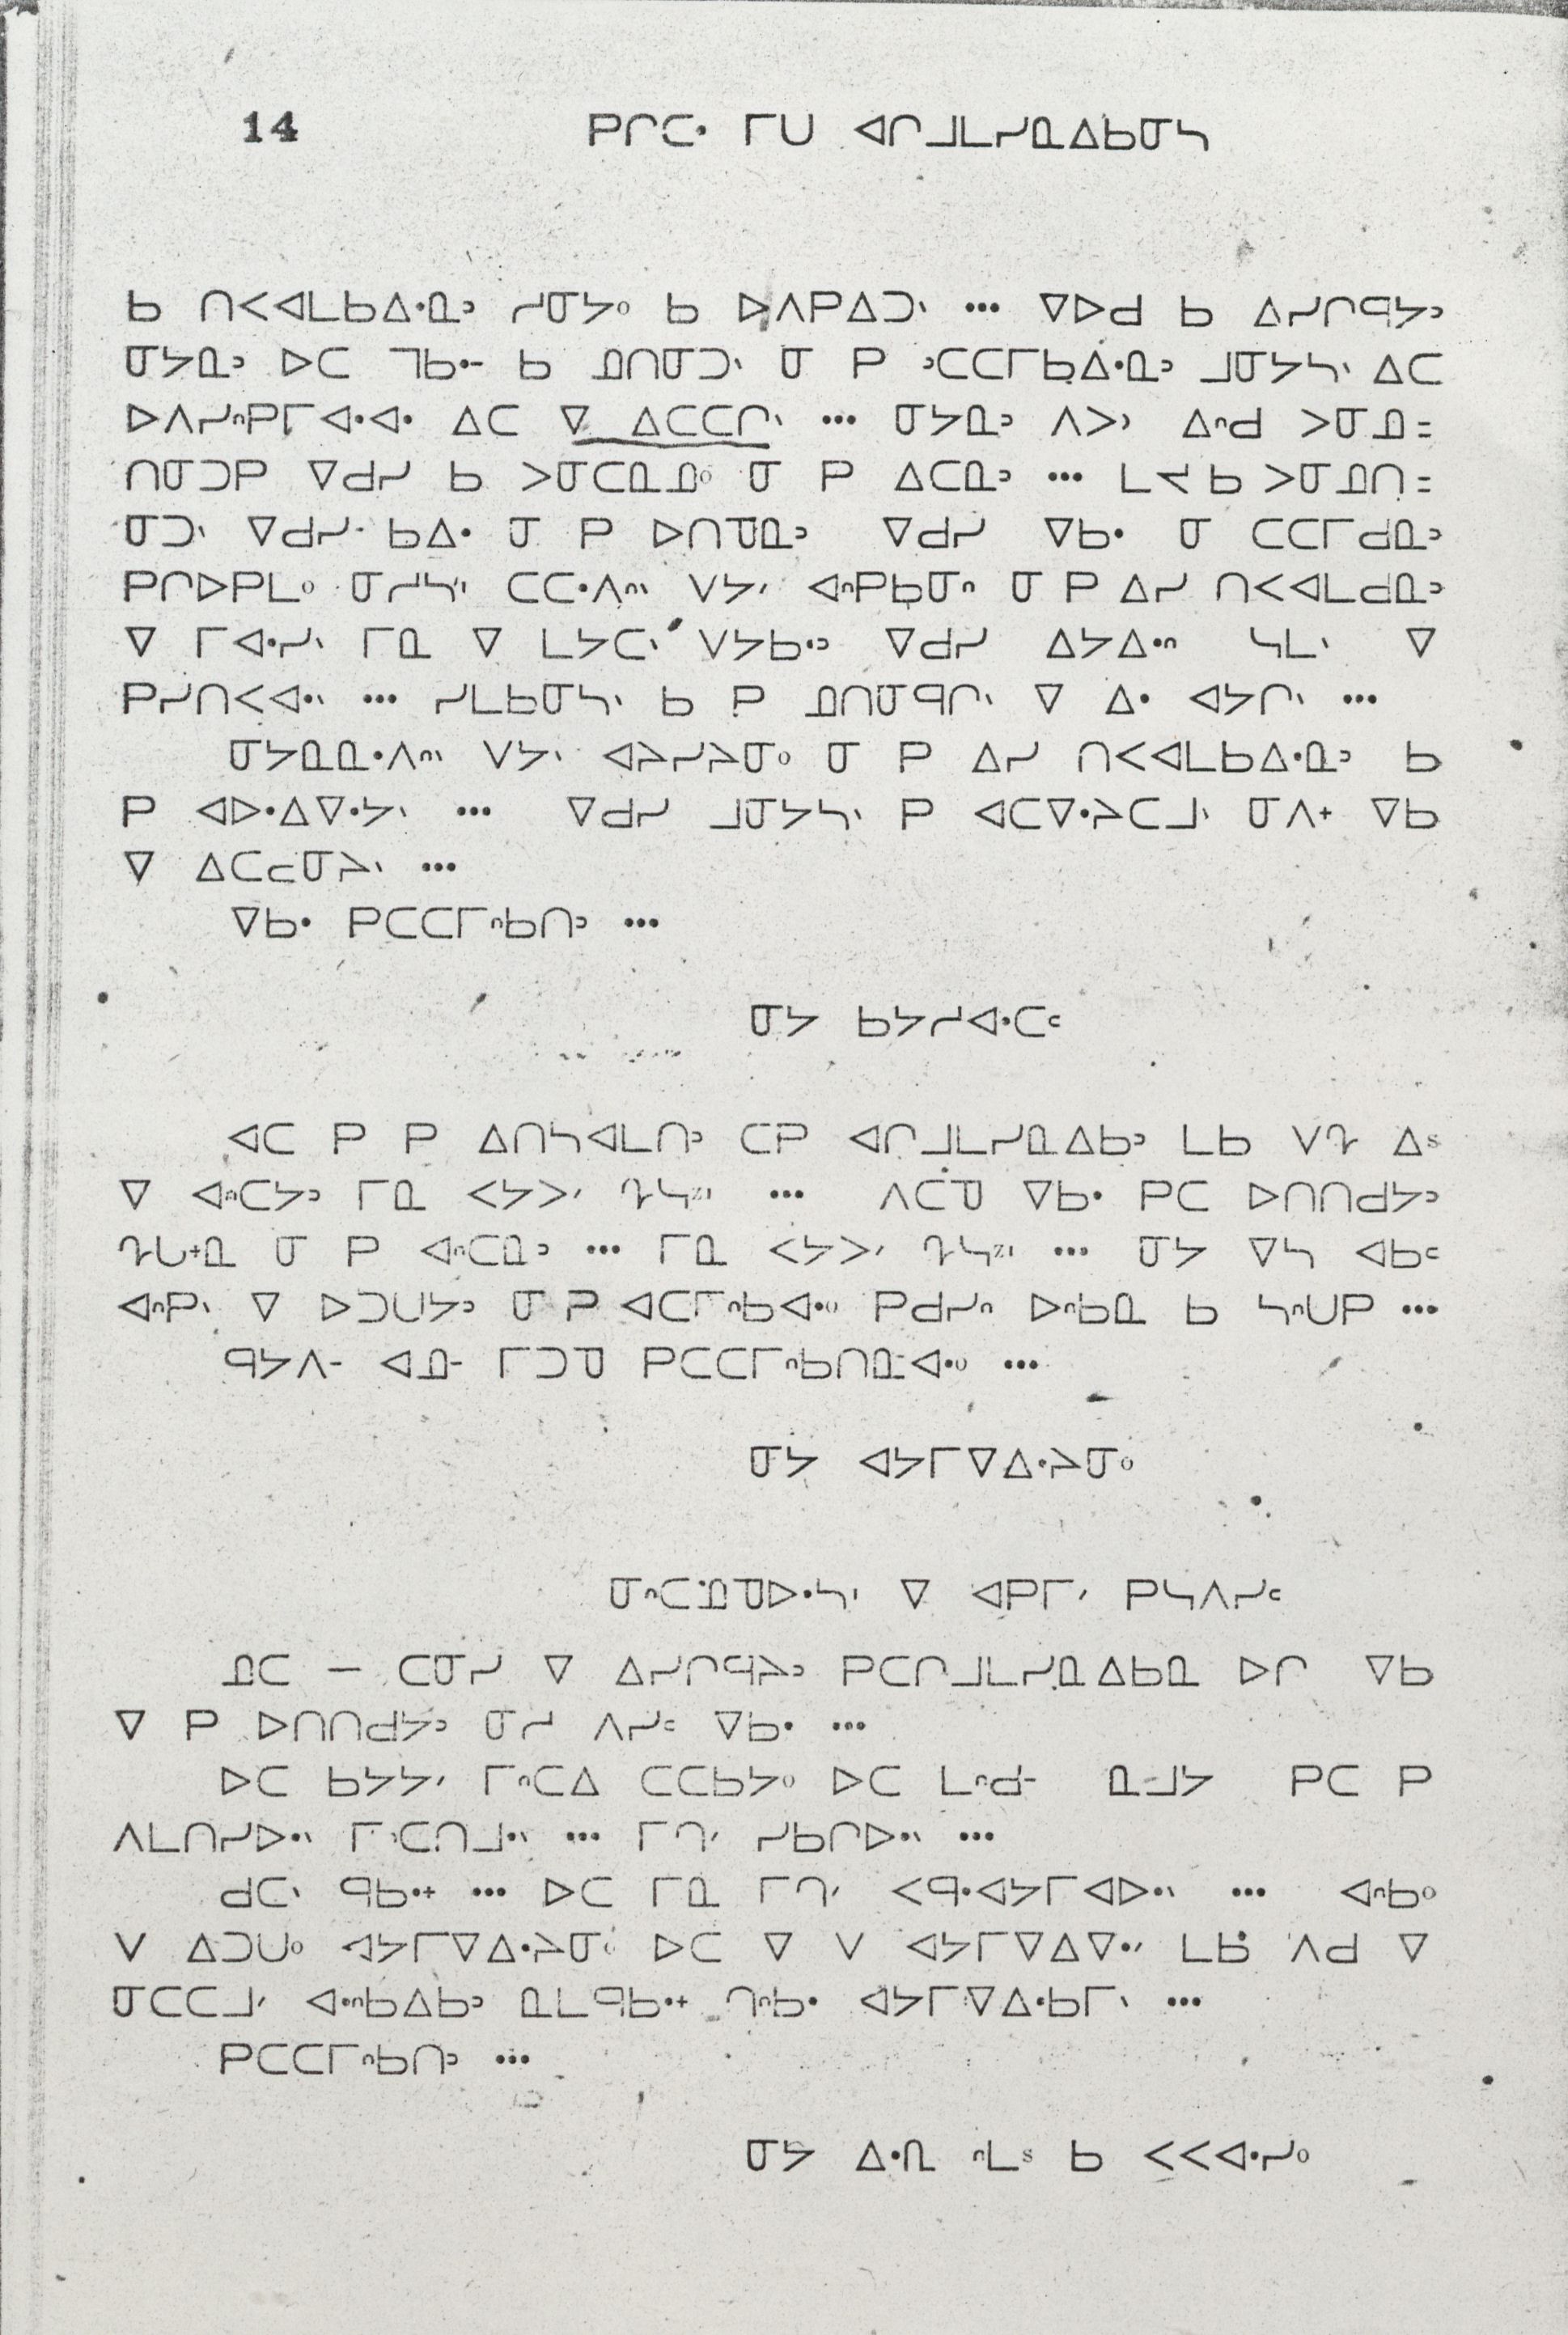 14 ᑭᒋᑕᐧ ᒥᑌ ᐊᒋᒧᒪᓯᓇᐃᑲᓂᓴ
ᑲ ᑎᐸᐊᒪᑲᐃᐧᓇᐣ ᓯᓂᔭᐤ ᑲ ᐅᐱᑭᐃᑐᐠ ••• ᐁᐅᑯ ᑲ ᐃᓯᒋᑫᔭᐣ
ᓂᔭᓇᐣ ᐅᑕ ᑲ ᓄᑎᓂᑐᐠ ᓂ ᑭ ᑕᑕᒥᑲᐃᐧᓇᐣ ᒧᓂᔭᓴᐠ ᐃᑕ
ᐅᐱᓯᐢᑭᒥᐊᐧᐊᐧ ᐃᑕ ᐁ ᐃᑕᑕᒋᐠ ••• ᓂᔭᓇᐣ ᐱᐳᐣ ᐃᐢᑯ ᐳᓂᓄ=
ᑎᓂᑐᑭ ᐁᑯᓯ ᑲ ᐳᓂᑕᓇᓄᐤ ᓂ ᑭ ᐃᑕᓇᐣ ••• ᒪᔪ ᑲ ᐳᓂᓄᑎ=
ᓂᑐᐠ ᐁᑯᓯ ᑲᐃᐧ ᓂ ᑭ ᐅᑎᑌᓇᐣ ᐁᑯᓯ ᐁᑲᐧ ᓂ ᑕᑕᒥᑯᓇᐣ
ᑭᒋᐅᑭᒪᐤ ᓂᓱᓴᐠ ᑕᑕᐧᐱᐢᐠ ᐯᔭᐠ ᐊᐢᑭᑲᓂᐢ ᓂ ᑭ ᐃᓯ ᑎᐸᐊᒪᑯᓇᐣ
ᐁ ᒥᐊᐧᓯᐠ ᒥᓇ ᐁ ᒪᔭᑕᐠ ᐯᔭᑲᐧᐣ ᐁᑯᓯ ᐃᔭᐃᐧᐢ ᓴᒪᐠ ᐁ
ᑭᓯᑎᐸᐊᐧᐠ ••• ᓯᒪᑲᓂᓴᐠ ᑲ ᑭ ᓄᑎᓂᑫᒋᐠ ᐁ ᐃᐧ ᐊᔭᒋᐠ •••
ᓂᔭᓇᓇᐧᐱᐢᐠ ᐯᔭᐠ ᐊᔨᓯᔨᓂᐤ ᓂ ᑭ ᐃᓯ ᑎᐸᐊᒪᑲᐃᐧᓇᐣ ᑲ
ᑭ ᐊᐅᐧᐃᐁᐧᔭᐠ ••• ᐁᑯᓯ ᒧᓂᔭᓴᐠ ᑭ ᐊᑕᐁᐧᔨᑕᒧᐠ ᓂᐱᕀ ᐁᑲ
ᐁ ᐃᑕᓕᓂᔨᐠ •••
ᐁᑲᐧ ᑭᑕᑕᒥᐢᑲᑎᐣ •••
ᓂᔭ ᑲᔭᓱᐊᐧᑕᑦ
ᐊᑕ ᑭ ᑭ ᐃᑎᓴᐊᒪᑎᐣ ᑕᑭ ᐊᒋᒧᒪᓯᓇᐃᑲᐣ ᒪᑲ
ᐁ ᐊᐢᑕᔭᐣ ᒥᓇ ᐸᔭᐳᐠ ••• ᐱᑕᑌ ᐁᑲᐧ ᑭᑕ ᐅᑎᑎᑯᔭᐣ
ᓂ ᑭ ᐊᐢᑕᓇᐣ ••• ᒥᓇ ᐸᔭᐳᐠ ••• ᓂᔭ ᐁᓴ ᐊᑲᑦ
ᐊᐢᑭᐠ ᐁ ᐅᑐᑌᔭᐣ ᓂ ᑭ ᐊᑕᒥᐢᑲᐊᐧᐤ ᑭᑯᓯᐢ ᐅᐢᑲᓇ ᑲ ᓴᐢᑌᑭ •••
ᑫᔭᐱᐨ ᐊᓄᐨ ᒥᑐᑌ ᑭᑕᑕᒥᐢᑲᑎᓇᐊᐧᐤ •••
ᓂᔭ ᐊᔭᒥᐁᐃᐧᔨᓂᐤ
ᓂᐢᑕᓄᑌᐅᐧᓴᐠ ᐁ ᐊᑭᒥᐟ ᑭᓴᐱᓯᒼ
ᓄᑕ — ᑕᓂᓯ ᐁ ᐃᓯᒋᑫᔨᐣ ᑭᑕᒋᒧᒪᓯᓇᐃᑲᓇ ᐅᒋ ᐁᑲ
ᐁ ᑭ ᐅᑎᑎᑯᔭᐣ ᓂᓱ ᐱᓯᒼ ᐁᑲᐧ •••
ᐅᑕ ᑲᔭᔭᐟ ᒥᐢᑕᐃ ᑕᑕᑲᔭᐤ ᐅᑕ ᒪᐢᑯᐨ ᓇᒧᔭ ᑭᑕ ᑭ
ᐱᒪᑎᓯᐅᐧᐠ ᒥᐢᑕᑎᒧᐧᐠ ••• ᒥᒉᐟ ᓯᑲᒋᐅᐧᐠ •••
ᑯᑕᐠ ᑫᑲᐧᕀ ••• ᐅᑕ ᒥᓇ ᒥᒉᐟ ᐸᑫᐧᐊᔭᒥᐊᐅᐧᐠ ••• ᐊᐢᑲᐤ
ᐯ ᐃᑐᑌᐤ ᐊᔭᒥᐁᐃᐧᔨᓂᐤ ᐅᑕ ᐁ ᐯ ᐊᔭᒥᐁᐃᐁᐧᐟ ᒪᑲ ᐱᑯ ᐁ
ᓂᑕᑕᒧᐟ ᐊᐧᐢᑲᐃᑲᐣ ᓇᒪᑫᑲᐧᕀ ᒉᐢᑲᐧ ᐊᔭᒥᐁᐃᐧᑲᒥᐠ •••
ᑭᑕᑕᒥᐢᑲᑎᐣ •••
ᓂᔭ ᑲ ᐸᐸᐊᐧᓯᐤ